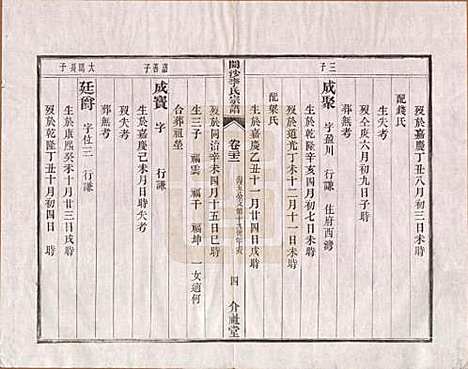 歿於嘉慶丁丑八月初三日未時
配錢氏
生失考
歿仝庚六月初九日子時
葬無考
三子
咸聚 字盈川 行謙 住府西灣
生於乾隆辛亥四月初七日未時
歿於道光丁未十二月十一日寅時
配葉氏
生於嘉慶乙丑十一月廿四日寅時
闗沙李氏宗譜
卷三十三
四
介祉堂
歿於同治辛未四月十五日巳時
生三子 福雲 福千 福坤 一女適何
合葬祖塋
善子
咸寶 字 行謙
生於嘉慶己未月日時失考
歿失考
葬無考
大長子
廷爵 字位三 行謙
生於康熙癸未十月廿三日戌時
歿於乾隆丁丑十月初四日時